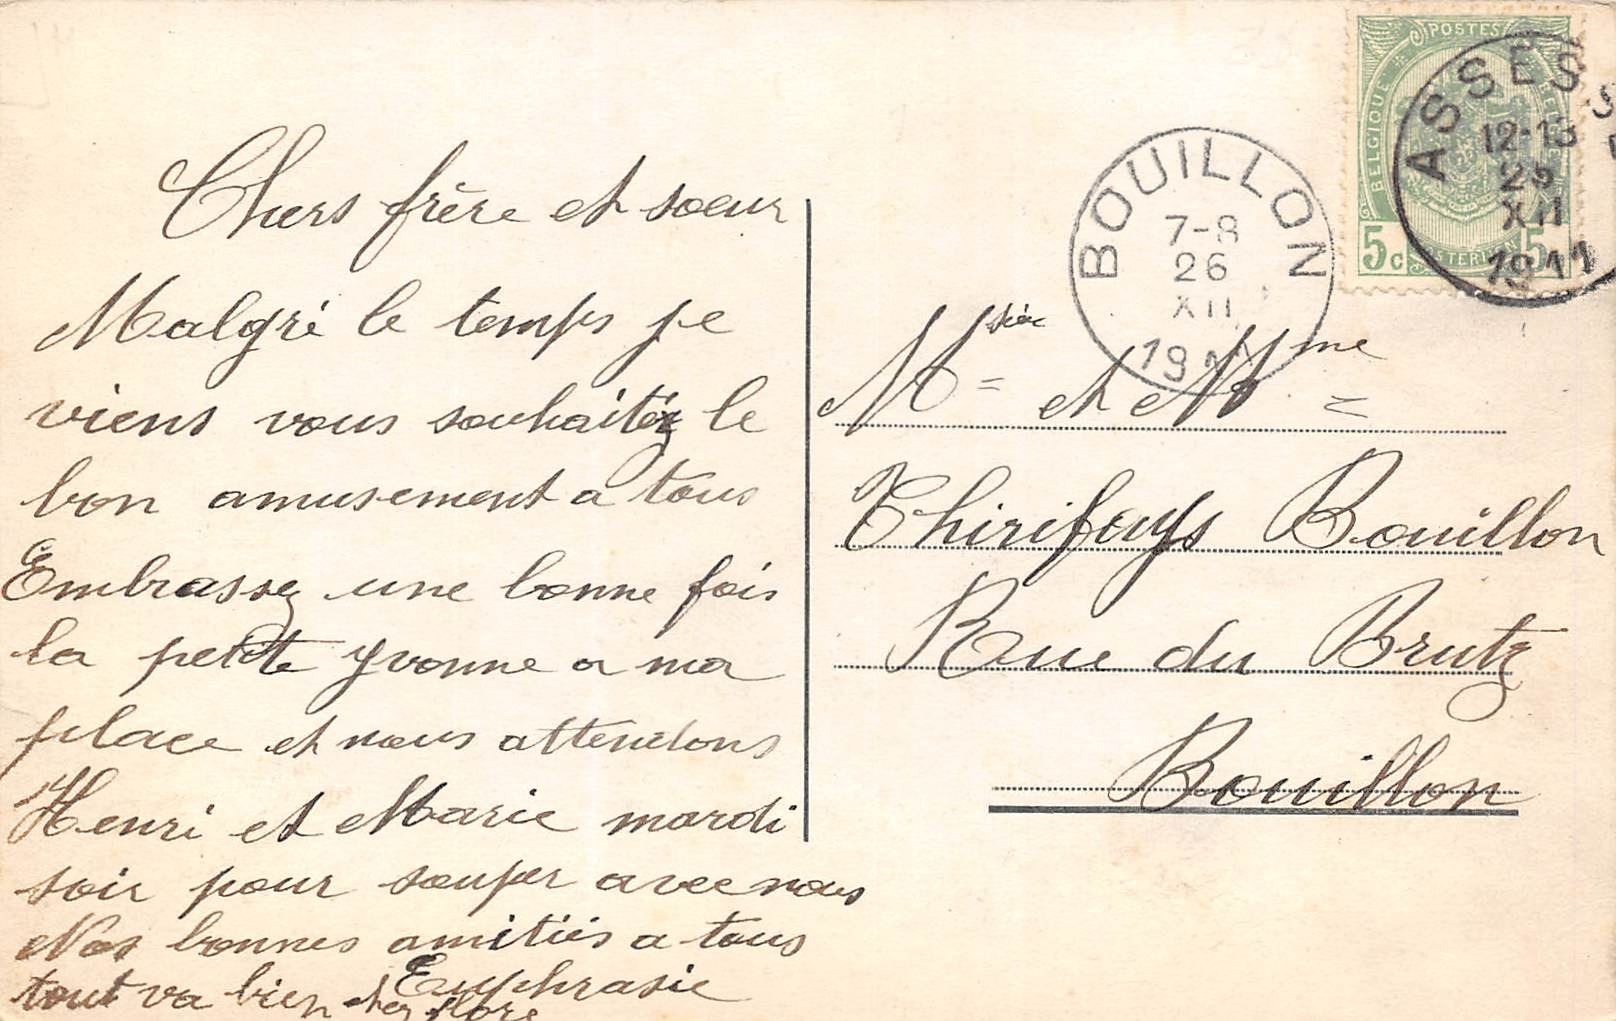 Chers frère et soeur
Malgré le temps je
viens vous souhaitéz le
bon amusement a tous
Embrassez une bonne fois
la petite Yvonne a ma
place et nous attendons
Henri et Marie mardi
soir pour souper avec nous
Nos bonnes amitiés a tous
Euphrasie
tout va bien chez
POSTES
BELGIQUE
5c
5
ASSESSE
12-13
25
XII
1911
BOUILLON
7-8
26
XII
1911
Msieur et Mme
Thirifays Bouillon
Rue du Brutz
Bouillon